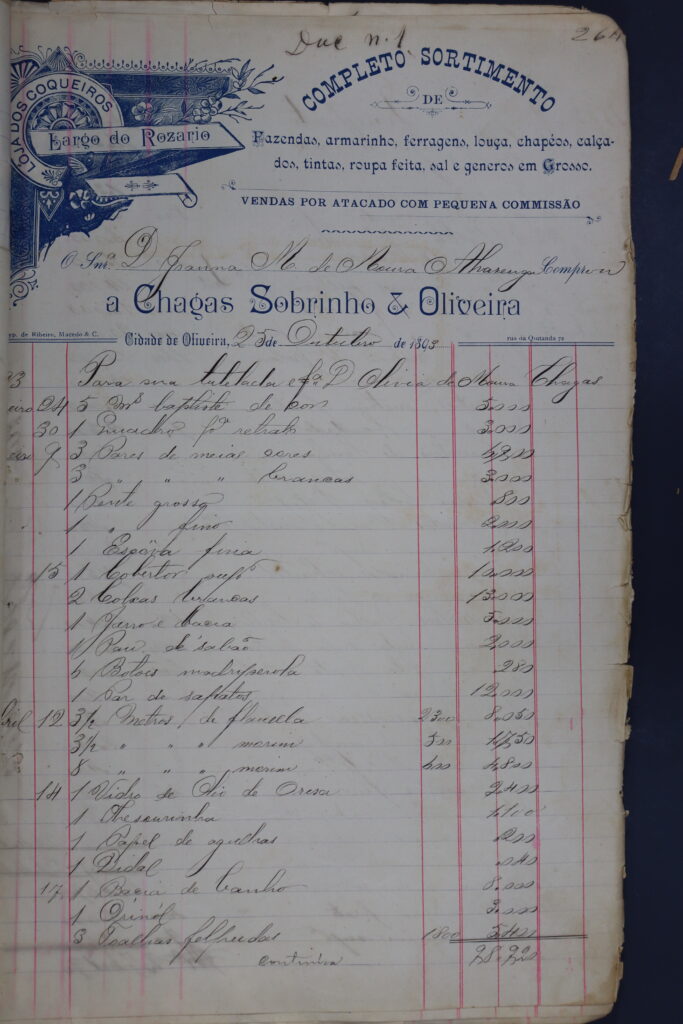 Doc n. 1
264
COMPLETO SORTIMENTO
DE
LOJA DOS COQUEIROS
Largo do Rozario
Fazendas, armarinho, ferragens, louça, chapéos, calça-
dos, tintas, roupa feita, sal e generos em Grosso.
VENDAS POR ATACADO COM PEQUENA COMMISSÃO
O Snr.ª D. Joanna M. de Moura Alvarenga Comprou
a Chagas Sobrinho & Oliveira
de Ribeiro, Macedo & C.
rua da Quitanda 77
Cidade de Oliveira, 25 de Outubro de 1893
93 Para sua tutelada e fª D Olivia de Moura Chagas
24 5 Ms baptiste de cor 5.000
30 1 pª retrato 3.000
9 3 Pares de meias cores
3 " " " brancas 3.000
1 Pente grosso 800
1 " fino 2.000
1 fina 1.200
15 1 Cobertor
2 Colxas brancas 13.000
1 Jarro e bacia 5.000
1 Pau de sabão 2.000
6 Botões madriperola 280
1 Par de sapatos 12.000
12 3½ Metros de flanella 2300 8.050
3½ " " " morim 500 1.750
8 " " " morim 600 4.800
14 1 Vidro de Olio de Oresa 2.400
1 Thesourinha
1 Papel de agulhas
1 Didal
17 1 Bacia de banho 8.000
1 Orinól 3.000
3 Toalhas felpudas 1800 5.400
continúa